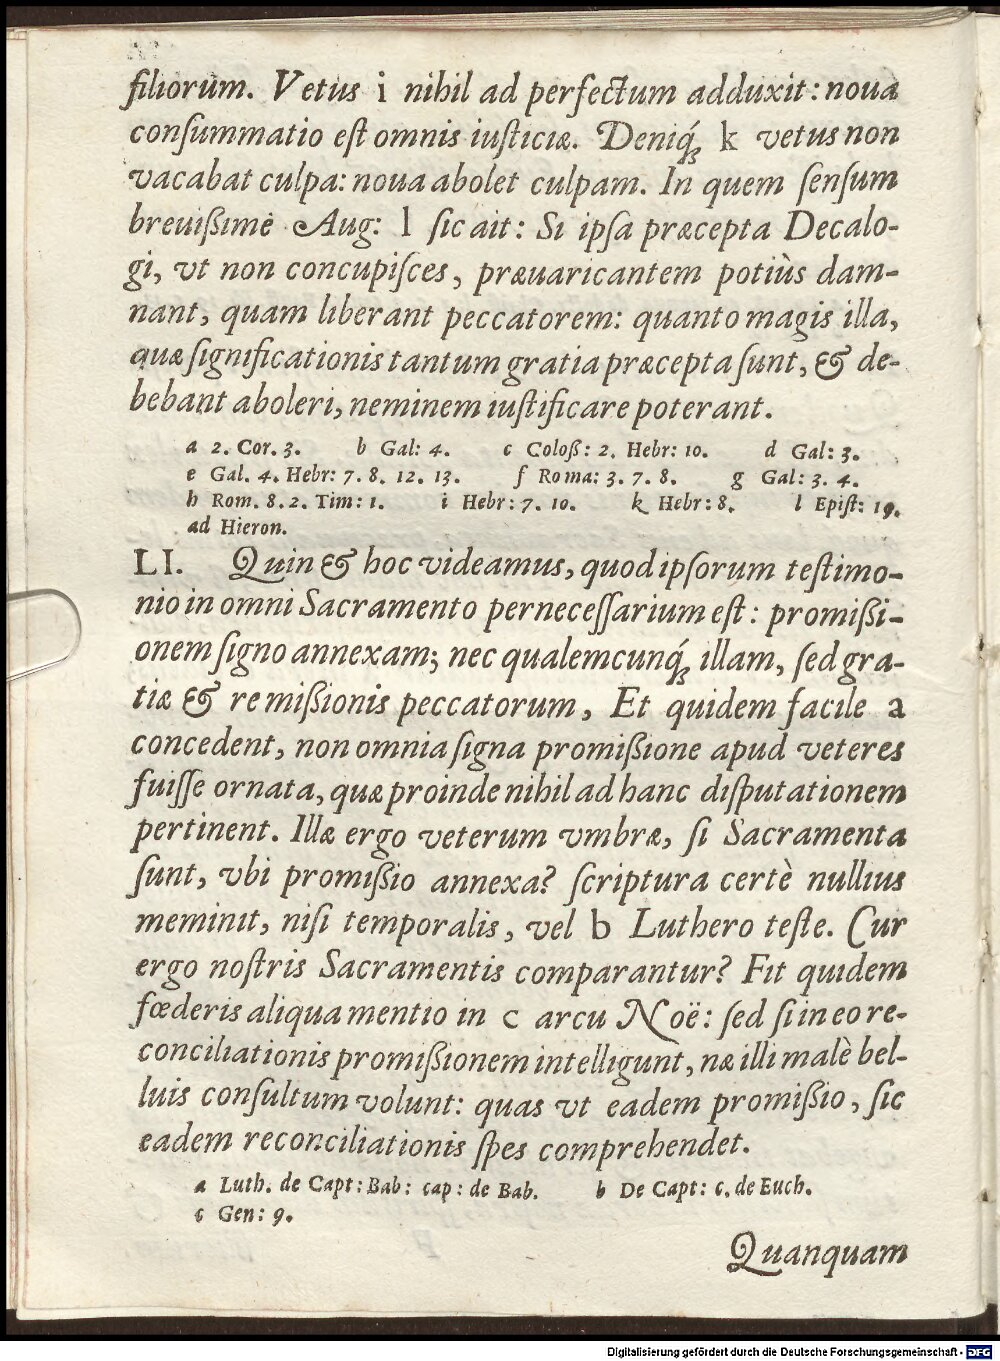 filiorum. Vetus i nihil ad perfectum adduxit: noua
consummatio est omnis iusticiæ. Deniq́ꝫ k vetus non
vacabat culpa: noua abolet culpam. In quem sensum
breuißimè Aug: l sic ait: Si ipsa præcepta Decalo-
gi, vt non concupisces, præuaricantem potiùs dam-
nant, quam liberant peccatorem: quanto magis illa,
quæ significationis tantum gratia præcepta sunt, & de-
bebant aboleri, neminem iustificare poterant.
a 2. Cor. 3. b Gal: 4. c Coloß: 2. Hebr: 10. d Gal: 3.
e Gal. 4. Hebr: 7. 8. 12. 13. f Roma: 3. 7. 8. g Gal: 3. 4.
h Rom. 8. 2. Tim: 1. i Hebr: 7. 10. k Hebr: 8. l Epist: 19.
ad Hieron.
LI. Quin & hoc videamus, quod ipsorum testimo-
nio in omni Sacramento pernecessarium est: promißi-
onem signo annexam; nec qualemcunq́ꝫ illam, sed gra-
tiæ & remißionis peccatorum, Et quidem facile a
concedent, non omnia signa promißione apud veteres
fuisse ornata, quæ proinde nihil ad hanc disputationem
pertinent. Illæ ergo veterum vmbræ, si Sacramenta
sunt, vbi promißio annexa? scriptura certè nullius
meminit, nisi temporalis, vel b Luthero teste. Cur
ergo nostris Sacramentis comparantur? Fit quidem
fœderis aliqua mentio in c arcu Noë: sed si in eo re-
conciliationis promißionem intelligunt, næ illi malè bel-
luis consultum volunt: quas vt eadem promißio, sic
eadem reconciliationis spes comprehendet.
a Luth. de Capt: Bab: cap: de Bab. b De Capt: c. de Euch.
c Gen: 9.
Quanquam
Digitalisierung gefördert durch die Deutsche Forschungsgemeinschaft - DFG